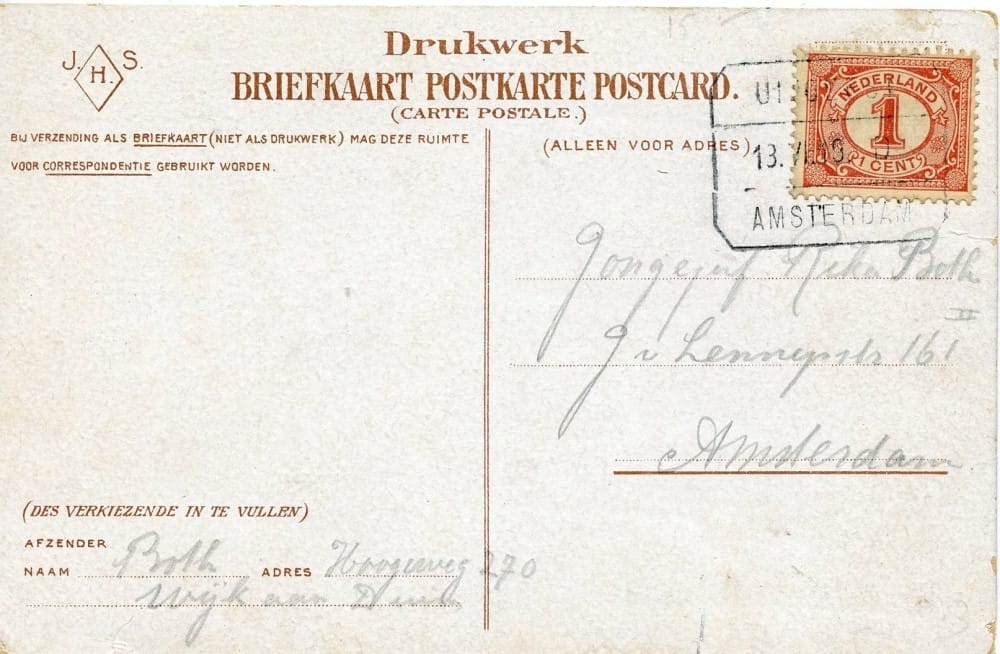 J. H S.
Drukwerk
BRIEFKAART POSTKARTE POSTCARD.
(CARTE POSTALE.)
BIJ VERZENDING ALS BRIEFKAART (NIET ALS DRUKWERK) MAG DEZE RUIMTE
VOOR CORRESPONDENTIE GEBRUIKT WORDEN.
(ALLEEN VOOR ADRES)
NEDERLAND
1
1 CENT
13.
AMSTERDAM
Jongejuf Both
II
J v Lennepstr 161
Amsterdam
(DES VERKIEZENDE IN TE VULLEN)
AFZENDER
NAAM Both ADRES Hoogeweg 270
Wijk aan Duin